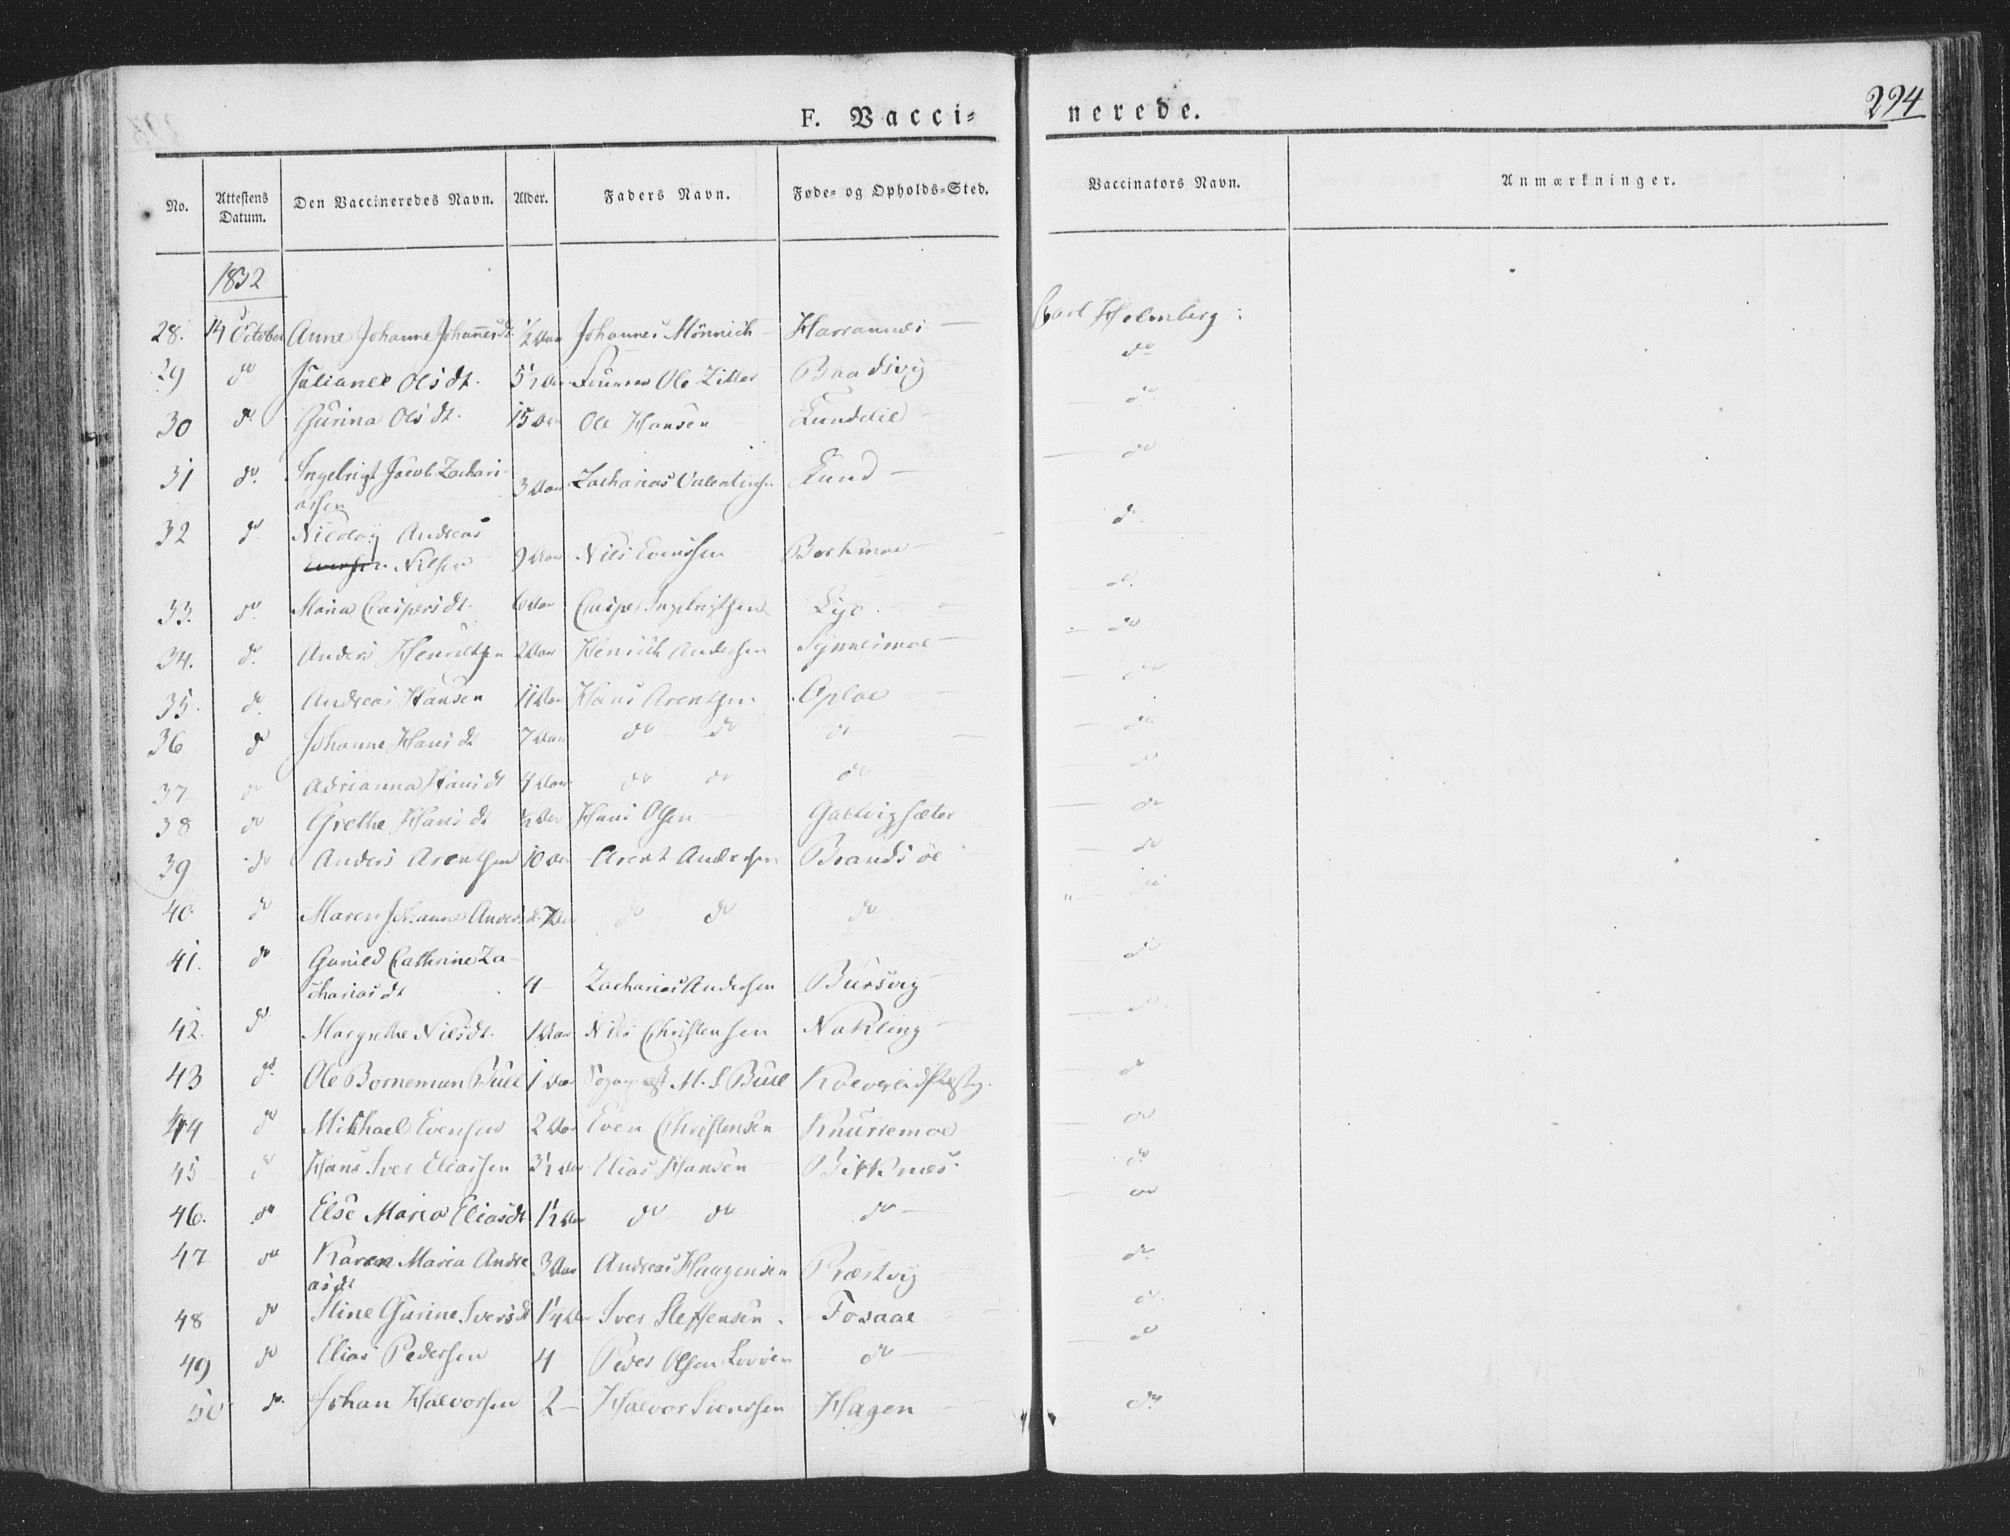 F. Vacci= nerede. 294
No. Attestens Datum. Den Vaccineredes Navn. Alder. Faders Navn. Føde- og Opholds-Sted. Vaccinators Navn. Anmærkninger.
1832
28. 14 October Anne Johanne Johannesdt ½ Aar Johannes Mönnich Carl Holmberg
29 do Juliane Olsdt. 5½ Aar Ole Baadsvig do
30 do Gurina Olsdt. 15 Aar Ole Hansen do
31 do. Ingebrigt Jacob Zachari- 3 Aar Zacharias Valentinsen Lund do
assen
32 do Nicolay Andreas do
Evensen Nilsen 9 Aar Nils Evensen
33. do. Maria Caspersdt. 6 Aar Casper Ingebrigtsen Lye do.
34. do. Anders Henrichsen 2 Aar Henrich Andersen do
35. do. Andreas Hansen 11 Aar Hans Arentsen Oploe do
36 do Johanne Hansdt 7 Aar do do do do
37 do Adrianna Hansdt 4 Aar do do do do
38 do Grethe Hansdt ½ Aar Hans Olsen Galtvigsæter do
39 do Anders Arentsen 10 Aar Arent Andersen Brandsöe do
40. do Maren Johanne Andersd. 7 Aar do do do do
41. do Gunild Cathrine Za- do
chariasdt 4 Zacharias Andersen Bursvig
42. do Margrethe Nilsdt. 1 Aar Nils Christensen Nakling do
43 do. Ole Borneman Bull 1 Aar Sogneprest M. S. Bull Kolvereid Præstg. do
44 do Mikhael Evensen 2 Aar Even Christensen Knurremoe do
45 do Hans Iver Eliassen 3½ Aar Elias Hansen Birknæs. do
46. do Else Maria Eliasdt 1½ Aar do do do do
47 do Karen Maria Andre 3 Aar Andreas Haagensen Præstvig do
asdt
48 do Stine Gurine Iversdt 1¼ Aar Iver Steffensen. Fosaae do.
49 do Elias Pedersen 4 Peder Olsen do do
50 do. Johan Halvorsen 2 Halvor Sivertsen Hagen do.